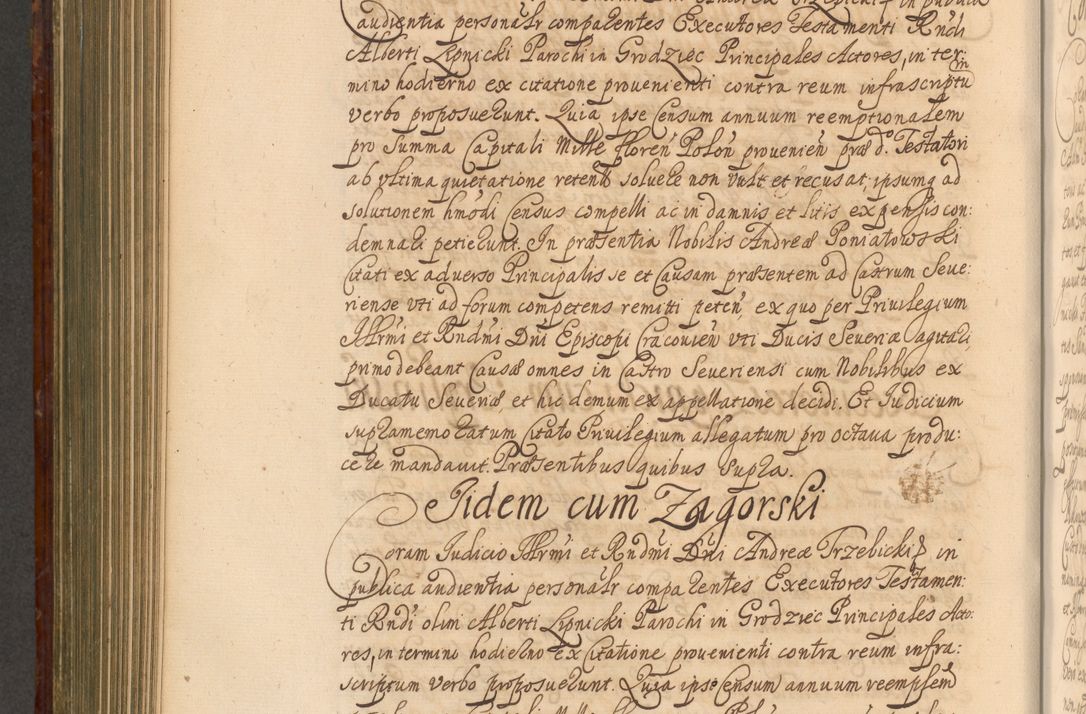 audientia personalr comparentes Executores Testamenti Rndi
Alberti Lipnicki Parochi in Grodziec Principales Actores, in ter
mino hodierno ex citatione provenienti contra reum infrascriptũ
verbo proposuerunt. Quia ipse Censum annuum reemptionalem
pro Summa Capitali Mille floren̄ Polon̄ provenien̄ præ d.º Testatori
ab vltima quietatione retent̄ solvere non vult et recusat, ipsumq ad
solutionem hm̄odi Census compelli ac in damnis et litis expensis con:
demnari petierunt. In præsentia Nobilis Andreæ Poniatowski
Citati ex adverso Principalis se et Causam præsentem ad Castrum Seve:
riense vti ad forum competens remitti peten̄, ex quo per Privilegium
Illrmi et Rndmi Dni Episcopi Cracovien̄ vti Ducis Severiæ agitari,
primo debeant Causæ omnes in Castro Severiensi cum Nobilibus ex
Ducatu Severiæ, et hic demum ex appellatione decidi. Et Iudicium
supramemoratum Citato Privilegium allegatum pro octava produ:
cere mandavit. Præsentibus quibus supra.
Iidem cum Zagorski
Coram Iudicio Illrmi et Rndmi Dni Andreæ Trzebicki in
publica audientia personalr comparentes Executores Testamen:
ti Rndi olim Alberti Lipnicki Parochi in Grodziec Principales Acto:
res, in termino hodierno ex Citatione provenienti contra reum infra:
scriptum verbo proposuerunt. Quia ipse Censum annuum reemplem